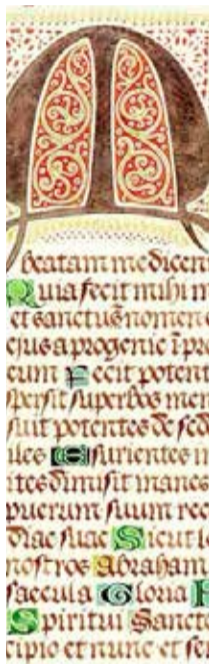 M
beatam me dicent
Quia fecit mihi m
et sanctu᷒ nomen e
ejus a progenie ī pro
eum Fecit potent
spersit superbos men
suit potentes de sed
ites Esurientes i
ites dimisit inanes
puerum suum rec
diae suae Sicut lo
nostros Abraham
saecula Gloria P
Spiritui Sancto
cipio et nunc et sem